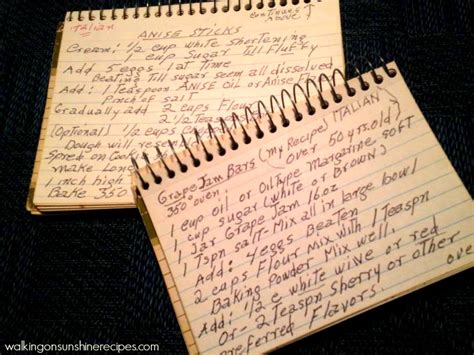 Italian
continues above ↑
ANISE STICKS
Cream: 1/2 cup white shortening
cup Sugar Till Fluffy
Add 5 eggs 1 at Time
Beating Till sugar seem all dissolved
Add: 1 Teaspon ANISE OIL or Anise
Pinch of salt
Gradually add 2 cups Flour
2 1/2 Teas
(Optional) 1/2 cups
Dough will
Spread on
make Long
1 inch high
Bake 350
Grape Jam Bars (my Recipe) ITALIAN
350° oven. over 50 yrs. old)
1 cup oil or Oil Type Margarine soft
1 cup sugar (white or Brown)
1 Jar Grape Jam 16oz
1 Tspn salt - Mix all in large bowl
Add: 4 eggs Beaten
2 cups Flour Mix with 1 Teaspn
Baking Powder Mix well,
Add: 1/2 c white wine or red
Or - 2 Teaspn Sherry or other
preferred Flavors. over
walkingonsunshinerecipes.com